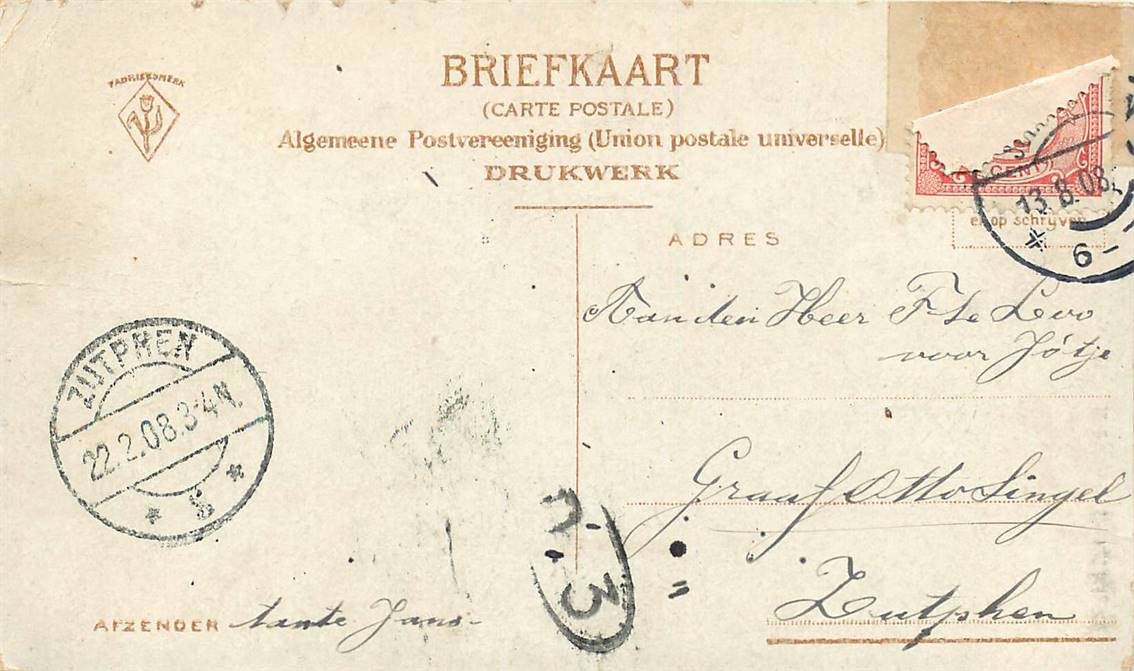 FABRIEKSMERK
BRIEFKAART
(CARTE POSTALE)
Algemeene Postvereeniging (Union postale universelle)
DRUKWERK
CENT
13.8.08
6-
en op schrijven
ADRES
Aan den Heer F. de
voor Jótje
Graaf Otto Singel
Zutphen
ZUTPHEN
22.2.08.3-4N.
* 5 *
n. 3
AFZENDER tante Jans-